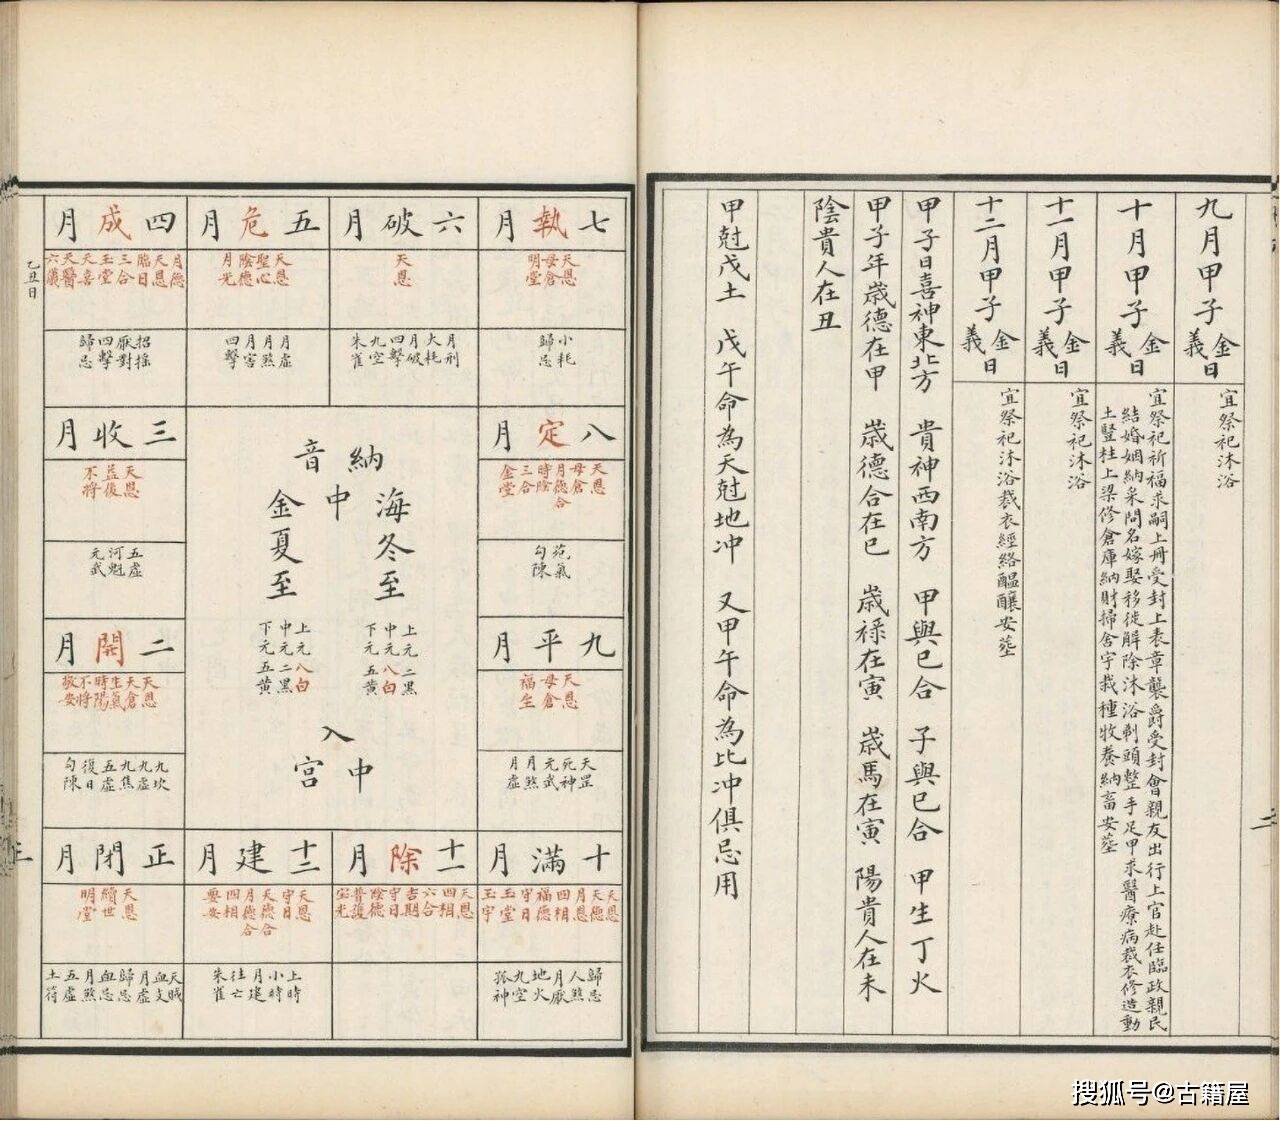 九月甲子
金義日
宜祭祀沐浴
十月甲子
金義日
宜祭祀祈福求嗣上册受封上表章襲爵受封會親友出行上官赴任臨政親民
結婚姻納采問名嫁娶移徙解除沐浴剃頭整手足甲求醫療病裁衣修造動
土豎柱上梁修倉庫納財掃舍宇栽種牧養納畜安葬
十一月甲子
金義日
宜祭祀沐浴
十二月甲子
金義日
宜祭祀沐浴裁衣經絡醞釀安葬
甲子日喜神東北方 貴神西南方 甲與己合 子與巳合 甲生丁火
甲子年歲德在甲 歲德合在巳 歲祿在寅 歲馬在寅 陽貴人在未
陰貴人在丑
甲尅戊土 戊午命為天尅地冲 又甲午命為比冲俱忌用
七執月
天恩
母倉
明堂
小耗
歸忌
六破月
天恩
月刑
大耗
月破
四擊
九空
朱雀
五危月
天恩
聖心
陰德
月光
月虛
月煞
月害
四擊
四成月
月德
天恩
臨日
三合
玉堂
天喜
天醫
六儀
招搖
厭對
四擊
歸忌
乙丑日
八定月
天恩
母倉
月德合
時陰
三合
金堂
死氣
勾陳
納音
海中金
冬至
上元二黑
中元八白
下元五黃
夏至
上元八白
中元二黑
下元五黃
入中宮
三收月
天恩
益後
不將
五虛
河魁
元武
九平月
天恩
母倉
福生
天罡
死神
元武
月煞
月虛
二開月
天恩
天倉
生氣
時陽
不將
敬安
九坎
九虛
九焦
五虛
復日
勾陳
十滿月
天恩
天德
月恩
四相
福德
守日
玉堂
玉宇
歸忌
人煞
月厭
地火
九空
孤神
十一除月
天恩
四相
六合
吉期
守日
陰德
普護
寶光
十二建月
天恩
守日
天德合
月德合
四相
要安
上時
小時
月建
往亡
朱雀
正閉月
天恩
續世
明堂
天賊
血支
月虛
歸忌
血忌
月煞
五虛
土符
搜狐号@古籍屋